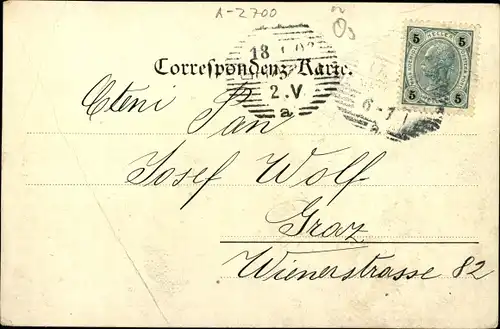 A-2700
18 I 02
Correspondenz-Karte.
2.V
a
5 HELLER 5
5 5
6-7
Cteni Pan
Josef Wolf
Graz
Wienerstrasse 82